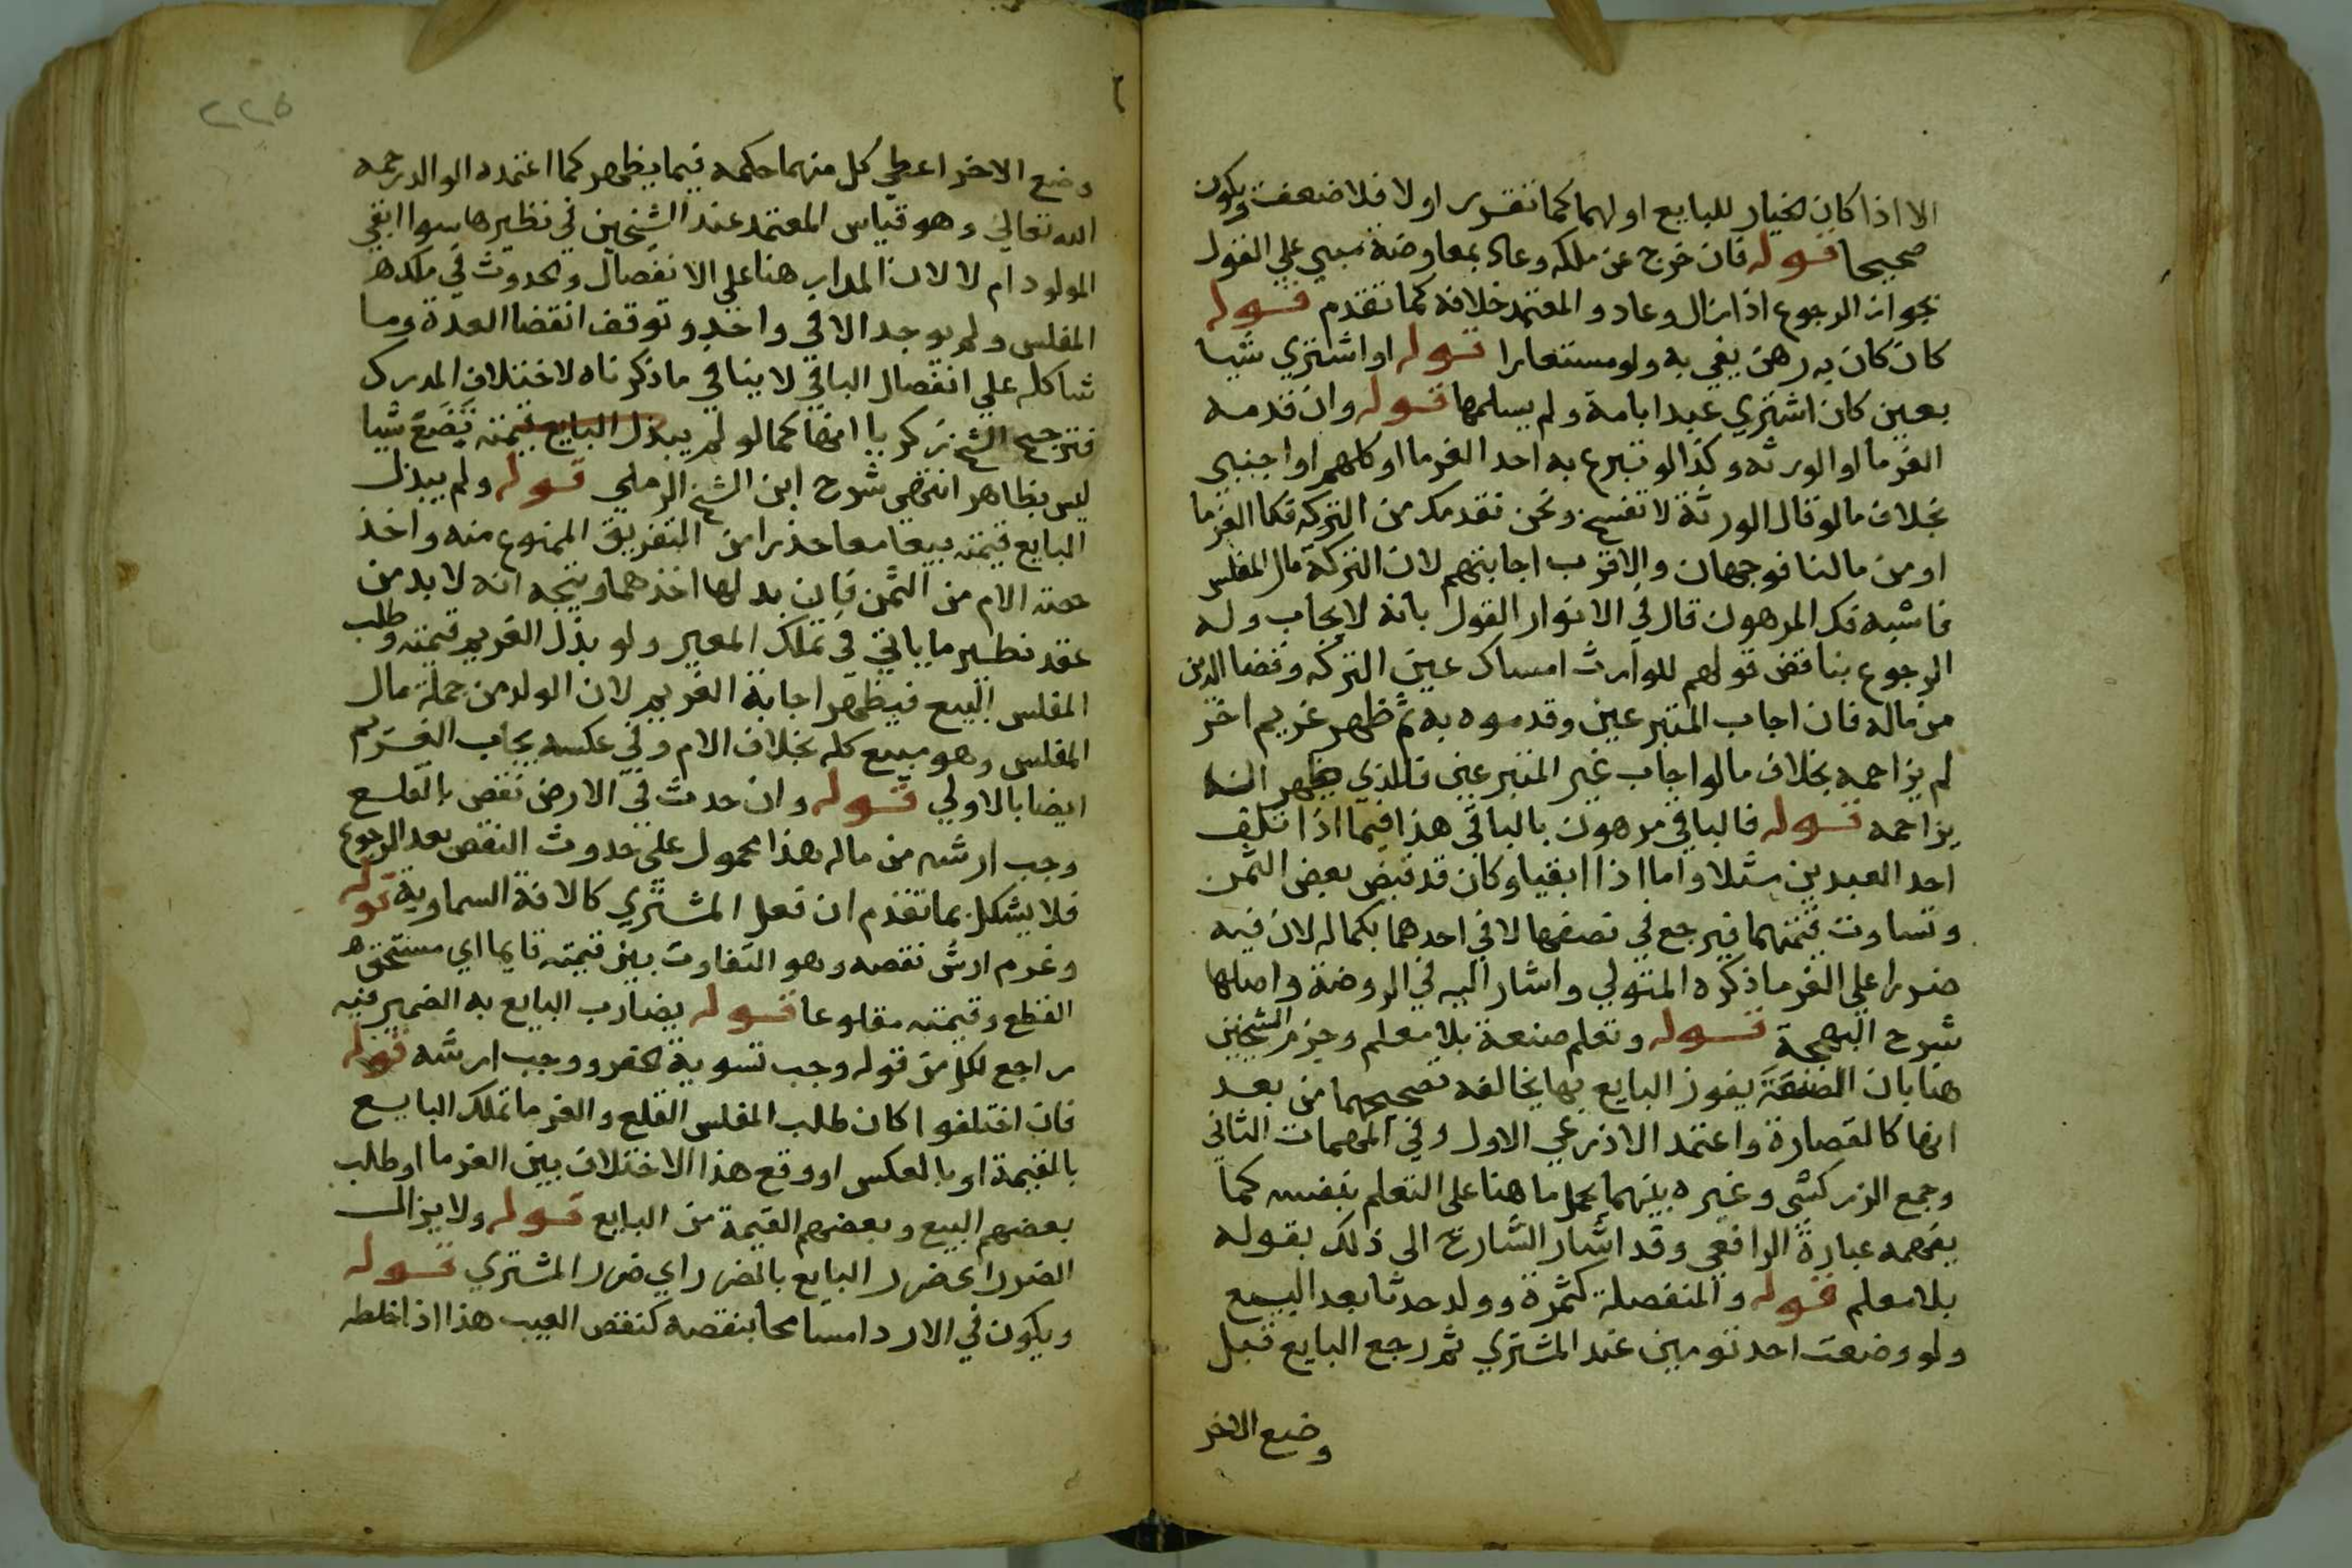 الا اذا كان الخيار للبايع اولهما كما تقرر اولا فلا ضعف ويكون
صحيحا قوله فان خرج عن ملكه وعاد بمعاوضة مبني علي القول
بجواز الرجوع اذا زال وعاد والمعتمد خلافه كما تقدم قوله
كان كان به رهن يفي به ولو مستعارا قوله او اشتري شيا
بعين كان اشتري عبدا بامة ولم يسلمها قوله وان قدمه
الغرما او الورثه وكذا لو تبرع به احد الغرما او كلهم او اجنبي
بخلاف ما لو قال الورثة لا تفسخ ونحن نقدمك من التركه فكالغرما
او من مالنا فوجهان والاقرب اجابتهم لان التركة مال المفلس
فاشبه فك المرهون قال في الانوار القول بانه لا يجاب وله
الرجوع يناقض قولهم للوارث امساك عين التركه وقضا الدين
من ماله فان اجاب المتبرعين وقدموه به ثم ظهر غريم اخر
لم يزاحمه بخلاف ما لو اجاب غير المتبرعين فالذي يظهر انه
يزاحمه قوله فالباقي مرهون بالباقي هذا فيما اذا تلف
احد العبدين مثلا واما اذا ابقيا وكان قد قبض بعض الثمن
وتساوت قيمتهما فيرجع في نصفها لا في احدهما بكماله لان فيه
ضررا علي الغرما ذكره المتولي واشار اليه في الروضة واصلها
شرح البهجة قوله وتعلم صنعة بلا معلم وجزم الشيخين
هنا بان الصنعة يفوز البايع بها يخالفه تصحيحهما من بعد
انها كالقصارة واعتمد الاذرعي الاول وفي المهمات الثاني
وجمع الزركشي وغيره بينهما بحمل ما هنا على التعلم بنفسه كما
يفهمه عبارة الرافعي وقد اشار الشارح الى ذلك بقوله
بلا معلم قوله والمنفصلة كثمرة وولد حدثا بعد البيع
ولو وضعت احد توءمين عند المشتري ثم رجع البايع قبل
وضع الاخر
٢٢٥
وضع الاخر اعطي كل منهما حكمه فيما يظهر كما اعتمده الوالد رحمه
الله تعالي وهو قياس المعتمد عند الشيخين في نظيرها سوا ابقي
المولود ام لا لان المدار هنا علي الانفصال والحدوث في ملك
المفلس ولم يوجد الا في واحد وتوقف انقضا العدة وما
شاكله علي انفصال الباقي لا ينافي ما ذكرناه لاختلاف المدرك
فترجيح الشيخ زكريا انها كما لو لم يبذل البايع قيمته تضع شيا
ليس بظاهر انتهي شرح ابن الشيخ الرملي قوله ولم يبذل
البايع قيمته بيعا معا حذرا من التفريق الممنوع منه واخذ
حصته الام من الثمن فان بدلها اخذهما ويتجه انه لا بد من
عقد نظير ما ياتي في تملك المعير ولو بذل الغريم قيمته وطلب
المفلس البيع فيظهر اجابة الغريم لان الولد من جملة مال
المفلس وهو مبيع كله بخلاف الام وفي عكسه يجاب الغريم
ايضا بالاولي قوله وان حدث في الارض نقص بالقلع
وجب ارشه من ماله هذا محمول على حدوث النقص بعد الرجوع
فلا يشكل بما تقدم ان فعل المشتري كالافة السماوية قوله
وغرم ارش نقصه وهو التفاوت بين قيمته قايما اي مستحق
القطع وقيمته مقلوعا قوله يضارب البايع به الضمير فيه
راجع لكل من قوله وجب تسوية الحفر ووجب ارشه قوله
فان اختلفوا كان طلب المفلس القلع والغرما تملك البايع
بالقيمة او بالعكس او وقع هذا الاختلاف بين الغرما او طلب
بعضهم البيع وبعضهم القيمة من البايع قوله ولا يزال
الضرر اي ضرر البايع بالضرر اي ضرر المشتري قوله
ويكون في الاردا مسامحا بنقصه كنقص العيب هذا اذا خلطه